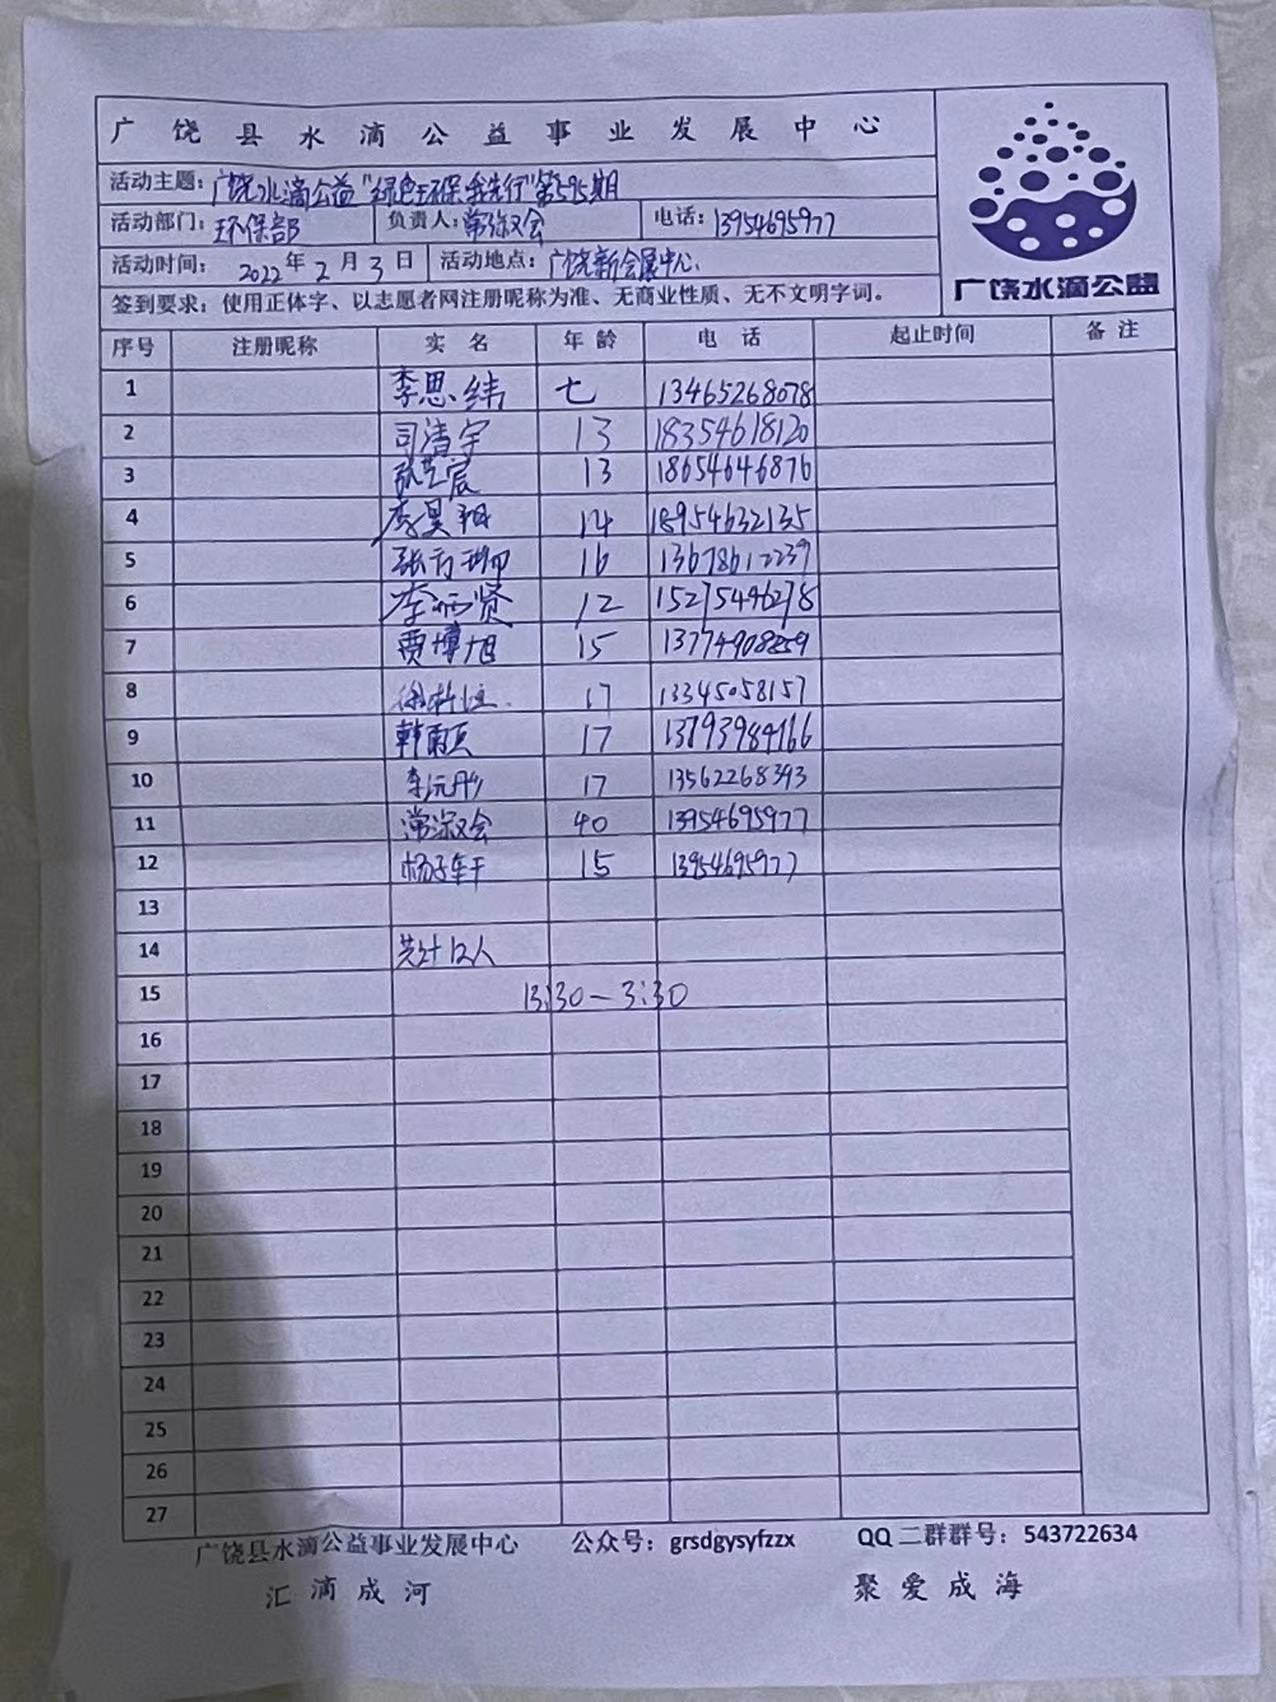 广饶县水滴公益事业发展中心
活动主题：广饶水滴公益"绿色环保,我先行"第595期
活动部门：环保部 负责人：常淑会 电话：13954695977
活动时间：2022年2月3日 活动地点：广饶新会展中心.
签到要求：使用正体字、以志愿者网注册昵称为准、无商业性质、无不文明字词。
广饶水滴公益
序号 注册昵称 实名 年龄 电话 起止时间 备注
1 李思纬 七 13465268078
2 司清宇 13 18354618120
3 张艺宸 13 18654646876
4 李昊翔 14 18954632135
5 张 16 13678612239
6 李炳贤 12 15275496278
7 贾博旭 15 13774908859
8 徐 17 13345058157
9 韩雨 17 13793984166
10 李沅彤 17 13562268393
11 常淑会 40 13954695977
12 杨子轩 15 13954695977
13
14 共计12人
15 13:30－3:30
16
17
18
19
20
21
22
23
24
25
26
27
广饶县水滴公益事业发展中心 公众号：grsdgysyfzzx QQ二群群号：543722634
汇滴成河 聚爱成海